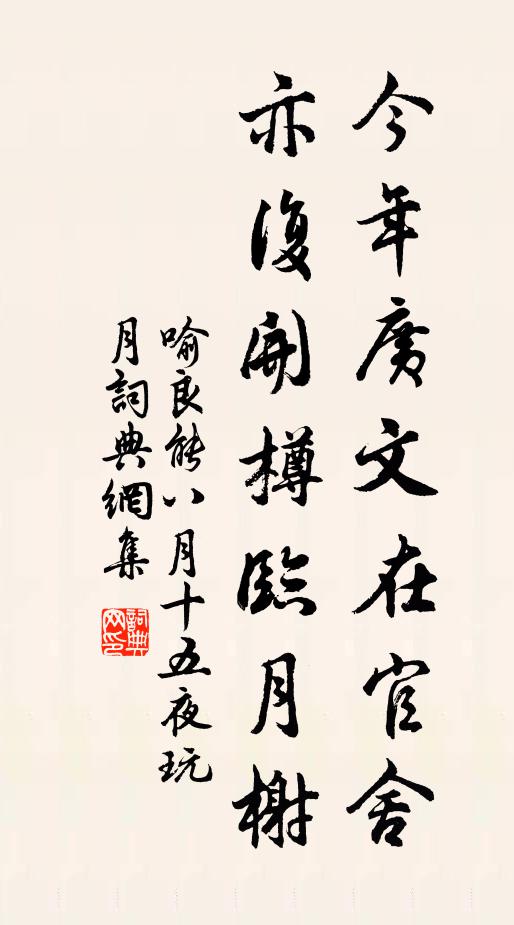 今年廣文在官舍
亦復開樽臨月榭
喻良能八月十五夜玩
月詞典網集
詞典網印